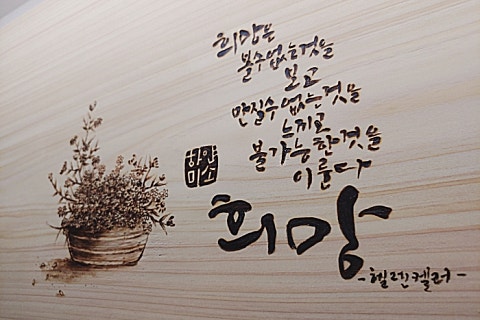 희망은
볼수없는것을
보고
만질수없는것을
느끼고
불가능한것을
이룬다
희망
-헬렌켈러-